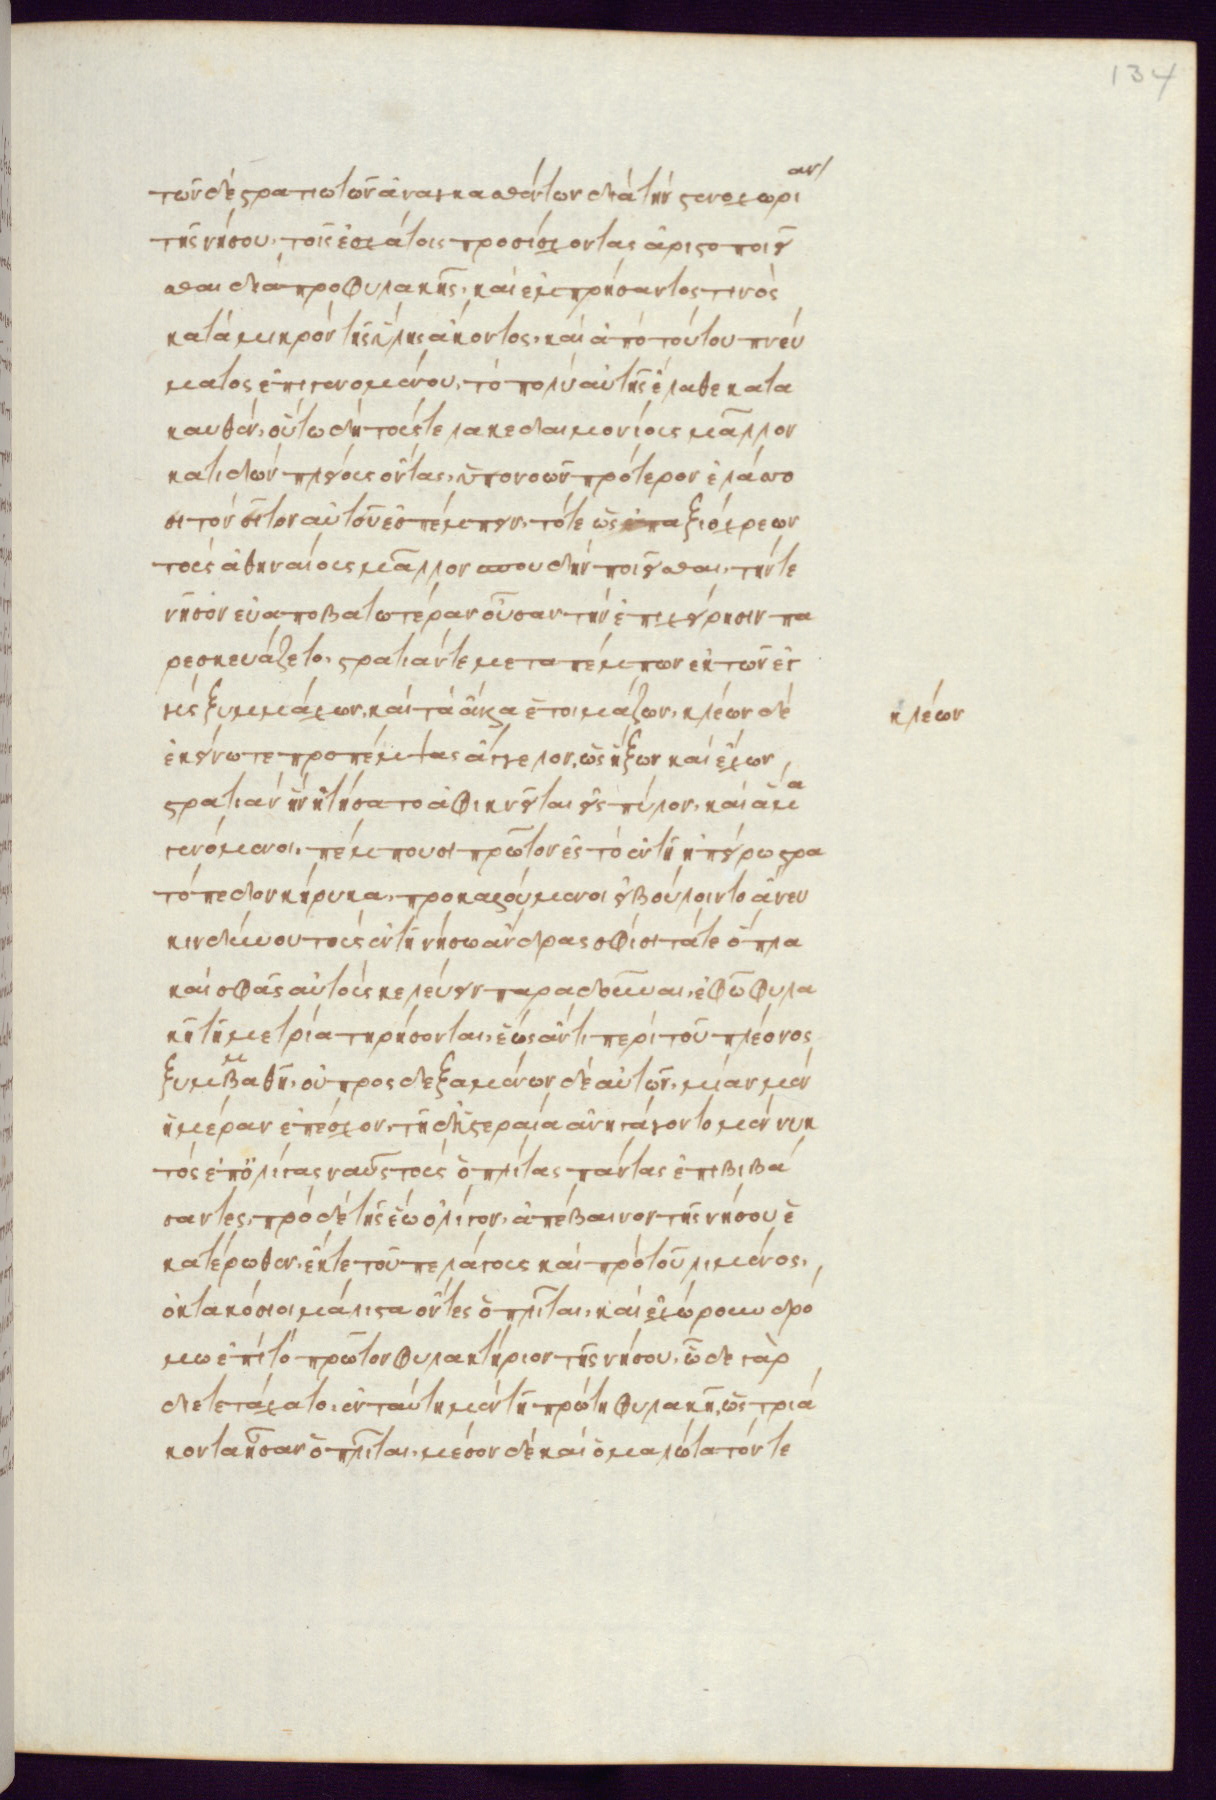 134
τῶν δὲ στρατιωτῶν ἀναγκασθέντων διὰ τὴν στενοχωρίαν
τῆς νήσου, τοῖς ἐσχάτοις προσίσχοντας ἀριστοποιεῖ
σθαι διὰ προφυλακῆς, καὶ ἐμπρήσαντος τινὸς
κατὰ μικρὸν τῆς ὕλης ἄκοντος, καὶ ἀπὸ τούτου πνεύ
ματος ἐπιγενομένου, τὸ πολὺ αὐτῆς ἔλαθε κατα
καυθέν, οὕτω δὴ τούς τε λακεδαιμονίους μᾶλλον
κατιδὼν πλείους ὄντας, ὑπονοῶν πρότερον ἐλάσσο
σι τὸν σῖτον αὐτοῦ ἐσπέμπειν, τότε ὡς ἐπ ἀξιόχρεων
τοὺς ἀθηναίους μᾶλλον σπουδὴν ποιεῖσθαι, τήν τε
νῆσον εὐαποβατωτέραν οὖσαν τὴν ἐπιχείρησιν πα
ρεσκευάζετο, στρατιάν τε μεταπέμπων ἐκ τῶν ἐγ
γὺς ξυμμάχων, καὶ τὰ ἄλλα ἑτοιμάζων, κλέων δὲ
κλέων
ἐκείνω τε προπέμψας ἄγγελον, ὡς ἥξων καὶ ἔχων
στρατιὰν ἣν ἠτήσατο ἀφικνεῖται εἰς πύλον, καὶ ἅμα
γενόμενοι, πέμπουσι πρῶτον ἐς τὸ ἐν τῆ ἠπείρω στρα
τόπεδον κήρυκα, προκαλούμενοι εἰ βούλοιντο ἄνευ
κινδύνου τοὺς ἐν τῆ νήσω ἄνδρας σφίσι τά τε ὅπλα
καὶ σφᾶς αὐτοὺς κελεύειν παραδοῦναι, ἐφ' ὧ φυλα
κῆ τῆ μετρία τηρήσονται, ἕως ἄν τι περὶ τοῦ πλέονος
ξυμβαθῆ, οὐ προσδεξαμένων δὲ αὐτῶν, μίαν μὲν
ἡμέραν ἐπέσχον, τῆ δ' ὑστεραία ἀνηγάγοντο μὲν νυκ
τὸς ἐπ' ὀλίγας ναῦς τοὺς ὁπλίτας πάντας ἐπιβιβά
σαντες, πρὸ δὲ τῆς ἕω ὀλίγον, ἀπέβαινον τῆς νήσου ἑ
κατέρωθεν, ἔκ τε τοῦ πελάγους καὶ πρὸ τοῦ λιμένος,
ὀκτακόσιοι μάλιστα ὄντες ὁπλῖται, καὶ ἐχώρουν δρό
μω ἐπὶ τὸ πρῶτον φυλακτήριον τῆς νήσου, ὧδε γὰρ
διετετάχατο, ἐν ταύτη μὲν τῆ πρώτη φυλακῆ, ὡς τριά
κοντα ἦσαν ὁπλῖται, μέσον δὲ καὶ ὁμαλώτατόν τε